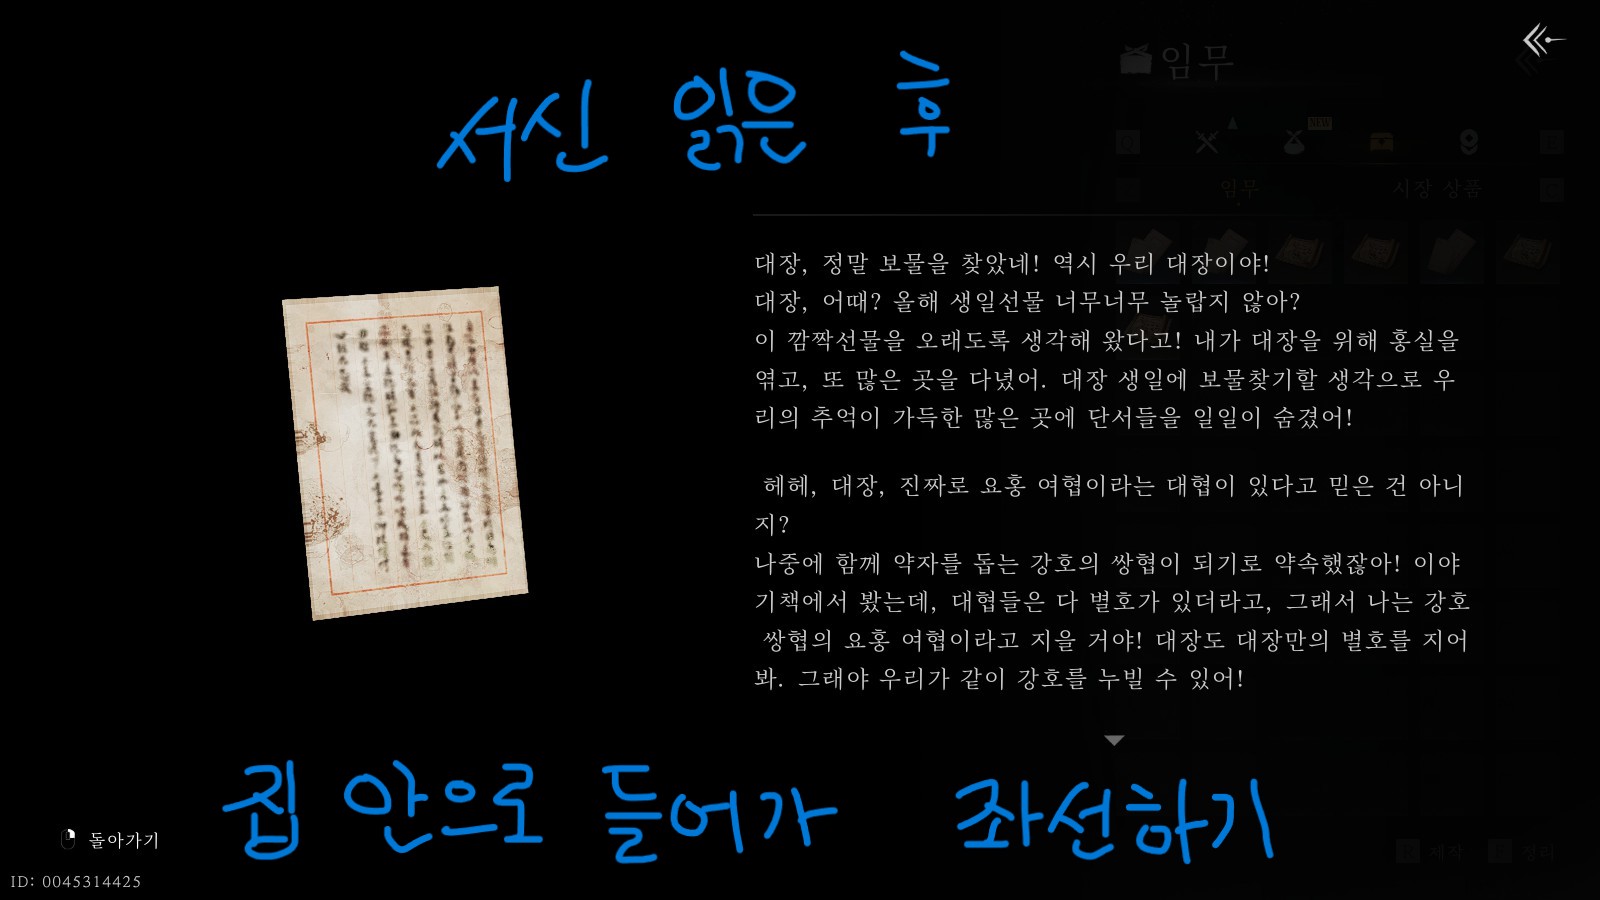 서신 읽은 후
임무
NEW
임무 시장 상품
대장, 정말 보물을 찾았네! 역시 우리 대장이야!
대장, 어때? 올해 생일선물 너무너무 놀랍지 않아?
이 깜짝선물을 오래도록 생각해 왔다고! 내가 대장을 위해 홍실을
엮고, 또 많은 곳을 다녔어. 대장 생일에 보물찾기할 생각으로 우
리의 추억이 가득한 많은 곳에 단서들을 일일이 숨겼어!
헤헤, 대장, 진짜로 요홍 여협이라는 대협이 있다고 믿은 건 아니
지?
나중에 함께 약자를 돕는 강호의 쌍협이 되기로 약속했잖아! 이야
기책에서 봤는데, 대협들은 다 별호가 있더라고, 그래서 나는 강호
쌍협의 요홍 여협이라고 지을 거야! 대장도 대장만의 별호를 지어
봐. 그래야 우리가 같이 강호를 누빌 수 있어!
집 안으로 들어가 좌선하기
돌아가기
정리
ID: 0045314425